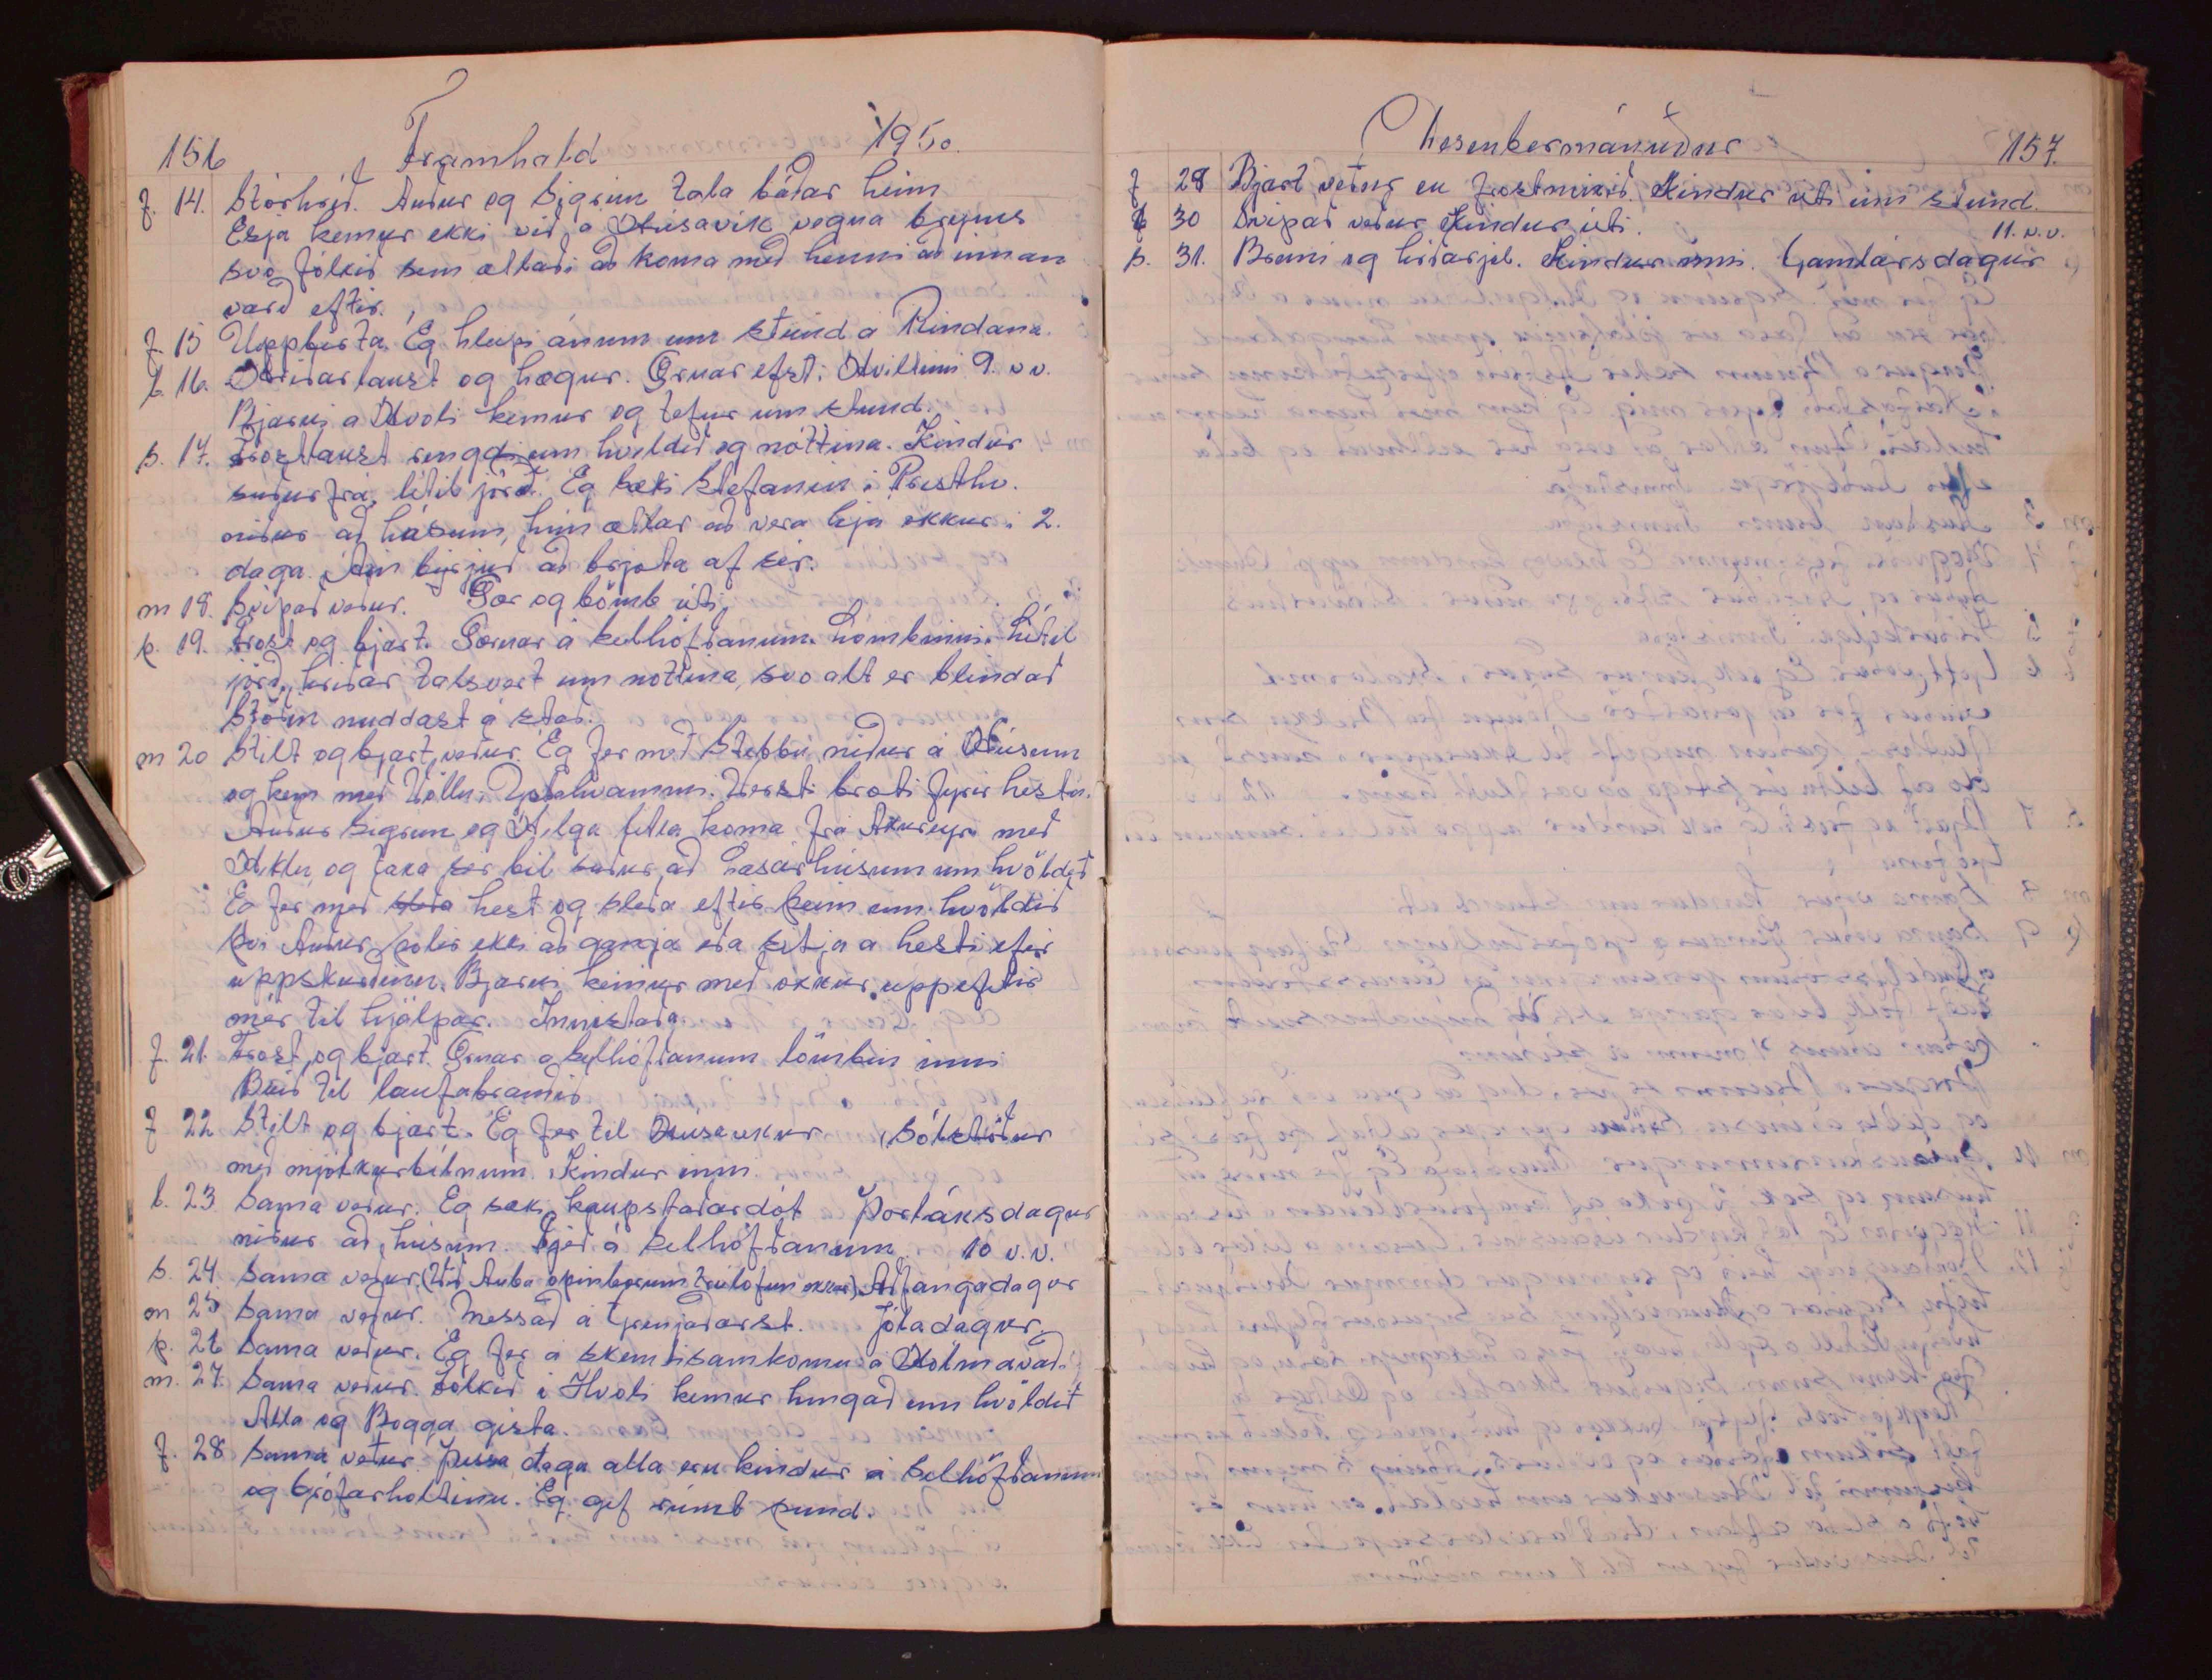 156 Framhald 1950.
f. 14. Stórhríð. Auður og Sigrún tala báðar heim
Esja kemur ekki við á Húsavík vegna brims
svo fólkið sem ætlaði að koma með henni að innan
varð eftir.
f. 15 Uppbirta. Ég hleypi ánum um stund á Rindana.
l. 16. Hríðarlaust og hægur. Ærnar efst í Hvillini 9. v v.
Bjarni á Hvoli kemur og tefur um stund.
s. 17. Frostlaust um kveldið og nóttina. Kindur
suðurfrá, lítil jörð. Ég sæki Stefaníu í Presthv.
niður að húsum, hún ætlar að vera hjá okkur í 2.
daga. Áin byrjuð að brjóta af sér.
m 18. Svipað veður. Ær og lömb úti.
þ. 19. Frost og bjart. Ærnar á Selhöfðanum. Lömb inni. Lítil
jörð, hríðar talsvert um nóttina, svo alt er blindað
Stórin nuddast á stað.
m 20 Stilt og bjart veður. Ég fer með Stebbu niður á Húsum
og kem með Höllu í Ystahvammi. Versti broti fyrir hesta.
Auður Sigrún og Helga litla koma frá Akureyri með
Heklu og taka sér bil suður að Laxárhúsum um kvöldið
Ég fer með hest og sleða eftir þeim um kvöldið
því Auður þolir ekki að ganga eða sitja á hesti eftir
uppskurðinn. Bjarni kemur með okkur uppeftir
mér til hjálpar. Innistaða
f. 21. Frost og bjart. Ærnar á Selhöfðanum lömbin inni
Búið til laufabrauðið
f 22 Stilt og bjart. Ég fer til Húsavíkur Sólstöður
með mjólkurbílnum. Kindur inni.
l. 23 Sama veður. Ég sæki kaupstaðardót Þorláksdagur
niður að húsum. Féð á Selhöfðanum. 10 v.v.
s. 24. Sama veður. (Við Auba opinberum trúlofun okkar) Aðfangadagur
m 25 Sama veður. Messað á Grenjaðarst. Jóladagur
þ. 26 Sama veður. Ég fer á skemtisamkomu á Hólmavaði.
m. 27. Sama veður. Fólkið í Hvoli kemur hingað um kvöldið
Alla og Bogga gista.
f. 28 Sama veður. Þessa daga alla eru kindur á Selhöfðanum
og Grófarholtinu. Ég gef rúmt pund.
Desembermánuður 157.
f 29 Bjart veður en frostmikið. Kindur úti um stund.
l 30 Svipað veður Kindur úti. 11. v.v.
s. 31. Bruni og hríðarjél. Kindur inni. Gamlársdagur